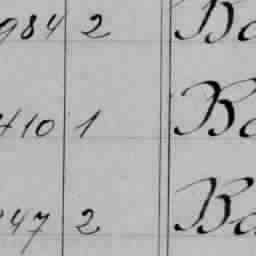 984 2 Ba
410 1 Ba
247 2 Ba